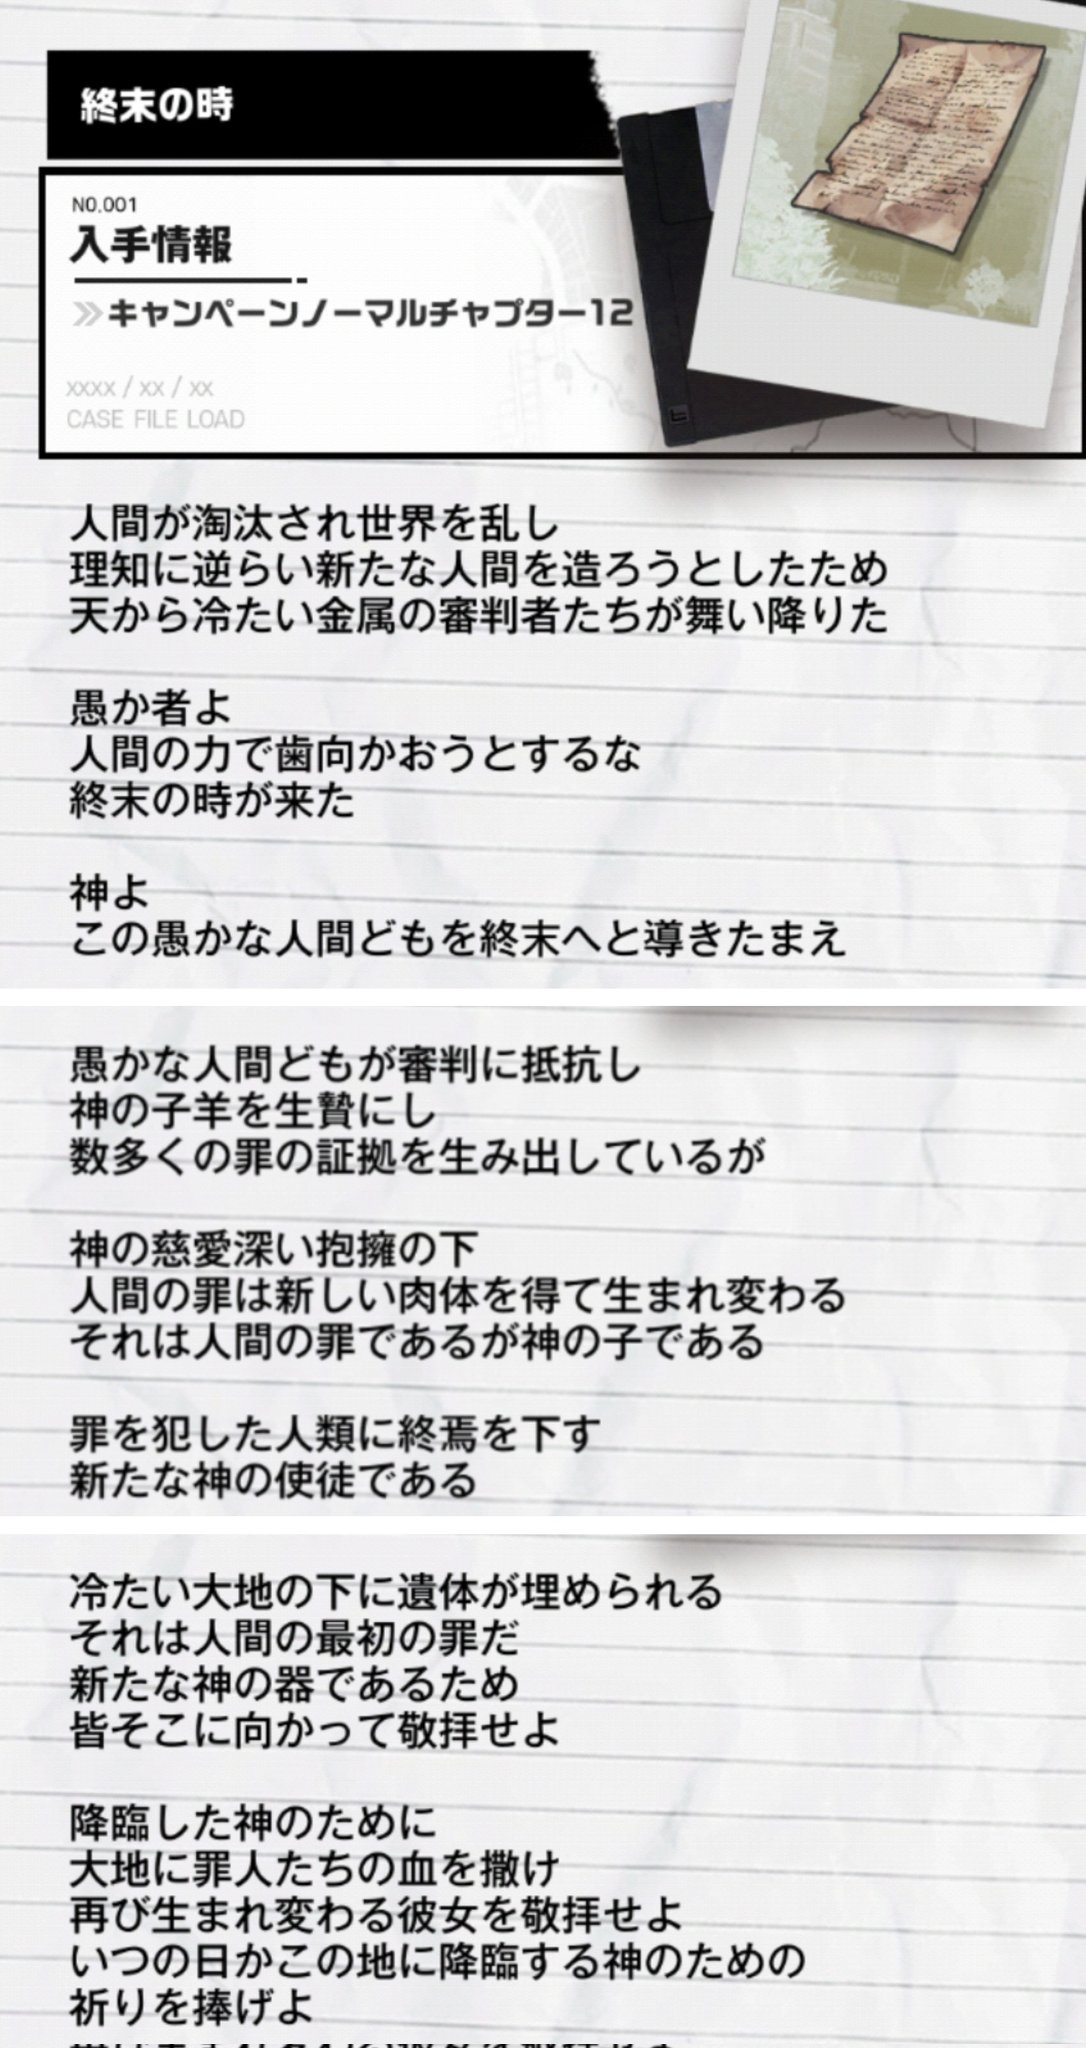 終末の時
NO.001
入手情報
キャンペーンノーマルチャプター12
xxxx / xx / xx
CASE FILE LOAD
人間が淘汰され世界を乱し
理知に逆らい新たな人間を造ろうとしたため
天から冷たい金属の審判者たちが舞い降りた
愚か者よ
人間の力で歯向かおうとするな
終末の時が来た
神よ
この愚かな人間どもを終末へと導きたまえ
愚かな人間どもが審判に抵抗し
神の子羊を生贄にし
数多くの罪の証拠を生み出しているが
神の慈愛深い抱擁の下
人間の罪は新しい肉体を得て生まれ変わる
それは人間の罪であるが神の子である
罪を犯した人類に終焉を下す
新たな神の使徒である
冷たい大地の下に遺体が埋められる
それは人間の最初の罪だ
新たな神の器であるため
皆そこに向かって敬拝せよ
降臨した神のために
大地に罪人たちの血を撒け
再び生まれ変わる彼女を敬拝せよ
いつの日かこの地に降臨する神のための
祈りを捧げよ